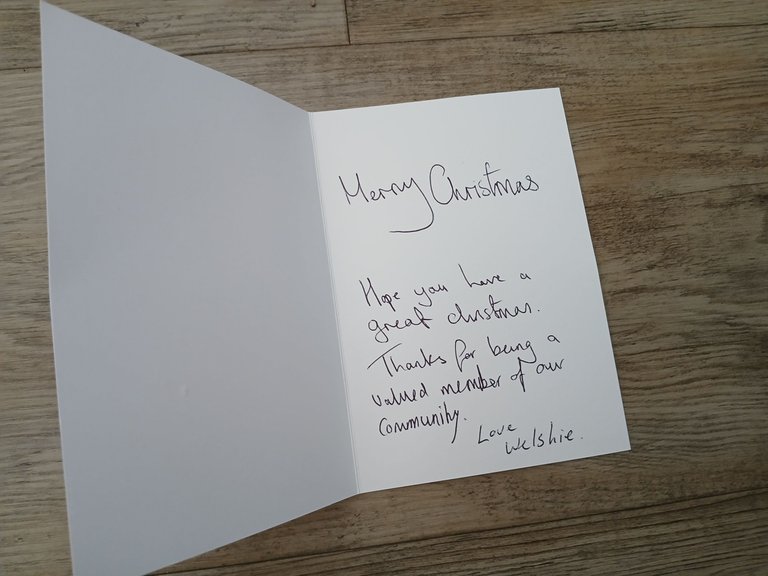 Merry Christmas
Hope you have a
great christmas.
Thanks for being a
valued member of our
community.
Love
Welshie.